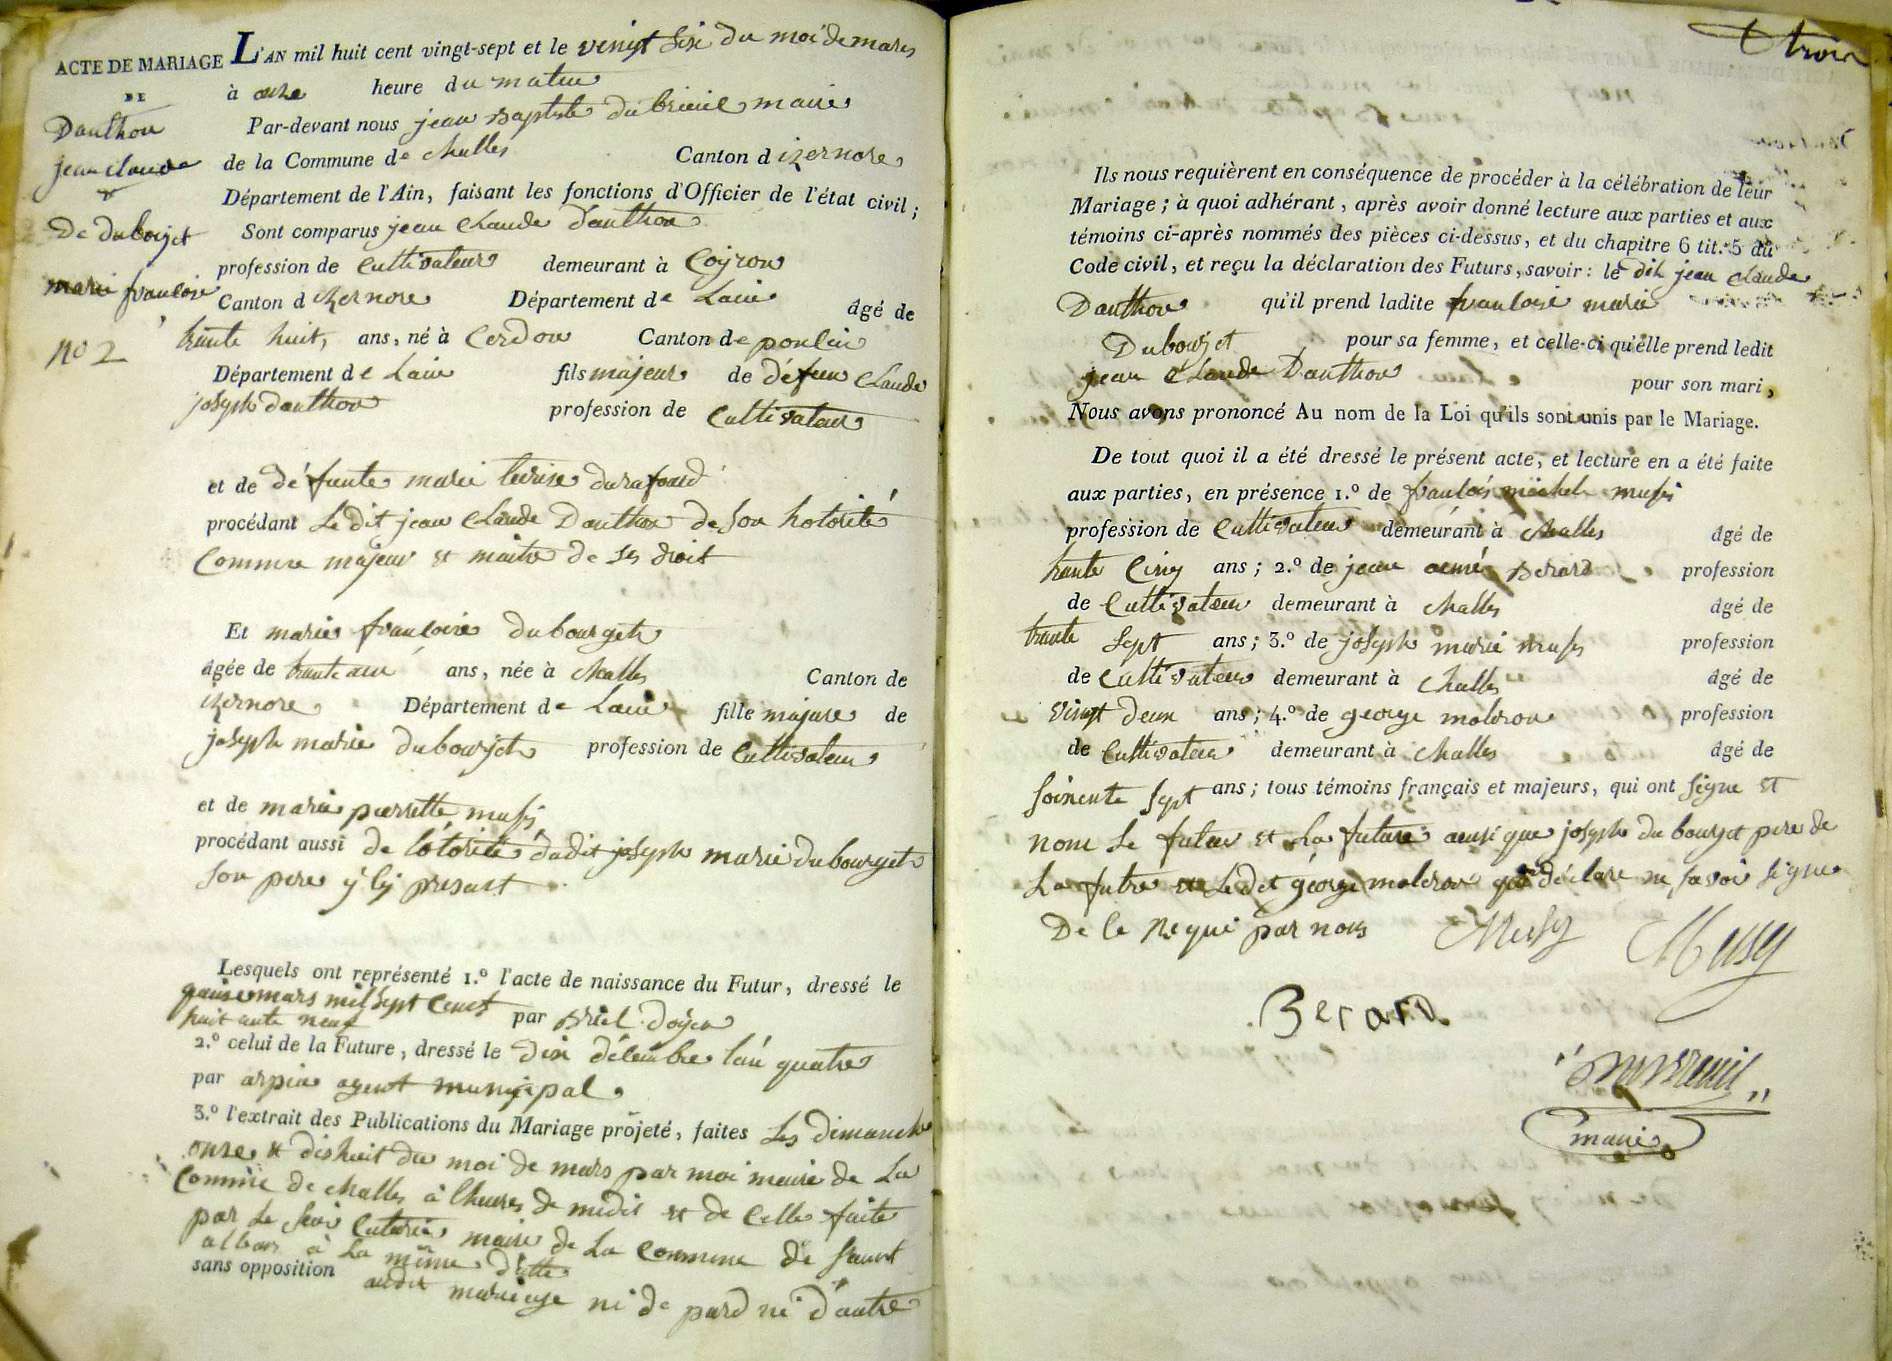 ACTE DE MARIAGE
DE
Danthon
jean claude
&
De dubourjet
marie francoise
no 2
L'AN mil huit cent vingt-sept et le vingt six du moi de mars
à onze heure du matin
Par-devant nous jean Baptiste dubrieul maire
de la Commune de challes Canton d izernore
Département de l'Ain, faisant les fonctions d'Officier de l'état civil;
Sont comparus jean claude danthon
profession de Cultivateur demeurant à Coiron
Canton d izernore Département de Lain âgé de
trante huit, ans, né à Cerdon Canton de poncin
Département de Lain fils majeur de défun claude
joseph danthon profession de Cultivateur
et de défunte marie durafourd
procédant Le dit jean claude Danthon de son hotorité
Comme majeur et maitre de ses droit
Et marie francoise dubourget
âgée de trante un ans, née à challes Canton de
izernore Département de Lain fille majure de
joseph marie dubourjet profession de Cultivateur
et de marie pierrette musy
procédant aussi de lotorité dudit joseph marie dubourget
son pere y isy presant
Lesquels ont représenté 1.º l'acte de naissance du Futur, dressé le
quinse mars mil sept Cent
huit ante neuf par Briel doyen
2.º celui de la Future, dressé le dix décembre l'an quatre
par arpin agent municipal
3.º l'extrait des Publications du Mariage projeté, faites Les dimanche
onze et dishuit du moi de mars par moi maire de La
Comune de challes à lheures de midit et de Celle faite
par Le sieur maire de La Commune de saint
alban à La même datte
sans opposition audit mariage ni de pard ni d'autre
troix
Ils nous requièrent en conséquence de procéder à la célébration de leur
Mariage; à quoi adhérant, après avoir donné lecture aux parties et aux
témoins ci-après nommés des pièces ci-dessus, et du chapitre 6 tit. 5 du
Code civil, et reçu la déclaration des Futurs, savoir: le dit jean claude
Danthon qu'il prend ladite francoise marie
Dubourjet pour sa femme, et celle-ci qu'elle prend ledit
jean claude Danthon pour son mari,
Nous avons prononcé Au nom de la Loi qu'ils sont unis par le Mariage.
De tout quoi il a été dressé le présent acte, et lecture en a été faite
aux parties, en présence 1.º de francois michel musy
profession de Cultivateur demeurant à challes âgé de
trante Cinq ans; 2.º de jean aimé Berard profession
de Cultivateur demeurant à challes âgé de
trante sept ans; 3.º de joseph marie musy profession
de Cultivateur demeurant à challes âgé de
vingt deux ans; 4.º de george moleron profession
de Cultivateur demeurant à challes âgé de
soixcente sept ans; tous témoins français et majeurs, qui ont signe et
nom Le futeur et La future ainsi que joseph dubourjet pere de
La futre et Ledet george moleron qui déclare ne savoir signe
De ce requi par nous Musy Musy
Berard
Dubreuil
maire